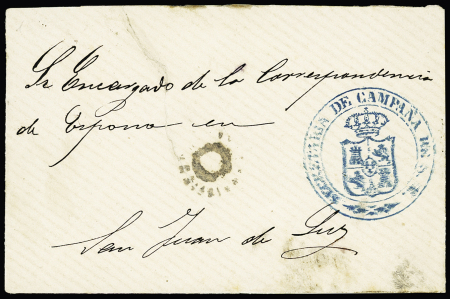 Sr Encargado de la Correspondencia
de España en
San Juan de Luz
DE CAMPAÑA DE S. M.